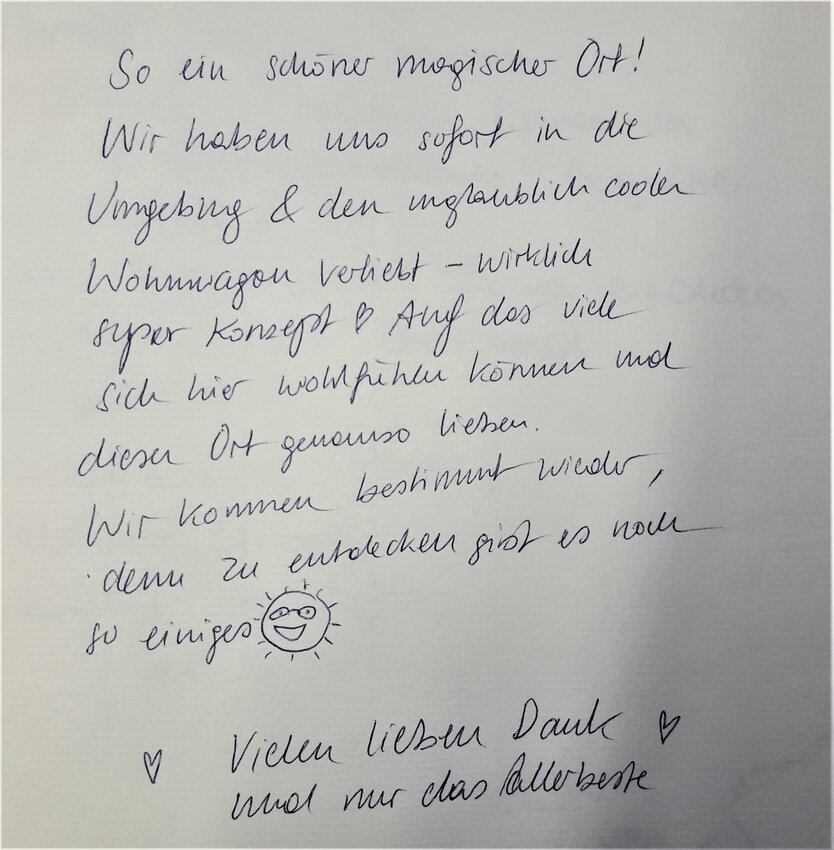 So ein schöner magischer Ort!
Wir haben uns sofort in die
Umgebung & den unglaublich coolen
Wohnwagon verliebt – wirklich
super Konzept ♡ Auf das viele
sich hier wohlfühlen können und
diesen Ort genauso lieben.
Wir kommen bestimmt wieder,
denn zu entdecken gibt es noch
so einiges
♡ Vielen lieben Dank ♡
und nur das Allerbeste